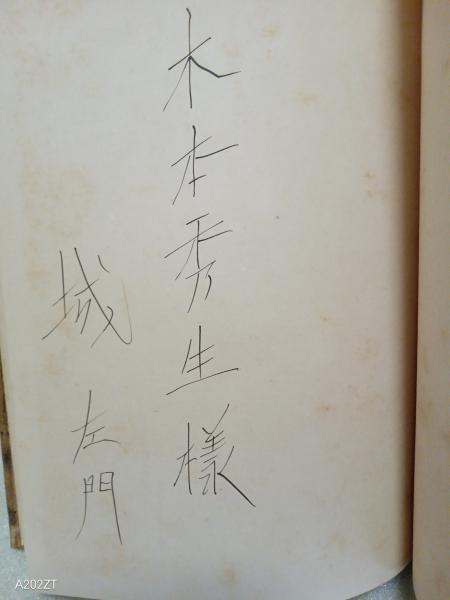 木本秀生様
城左門
A202ZT